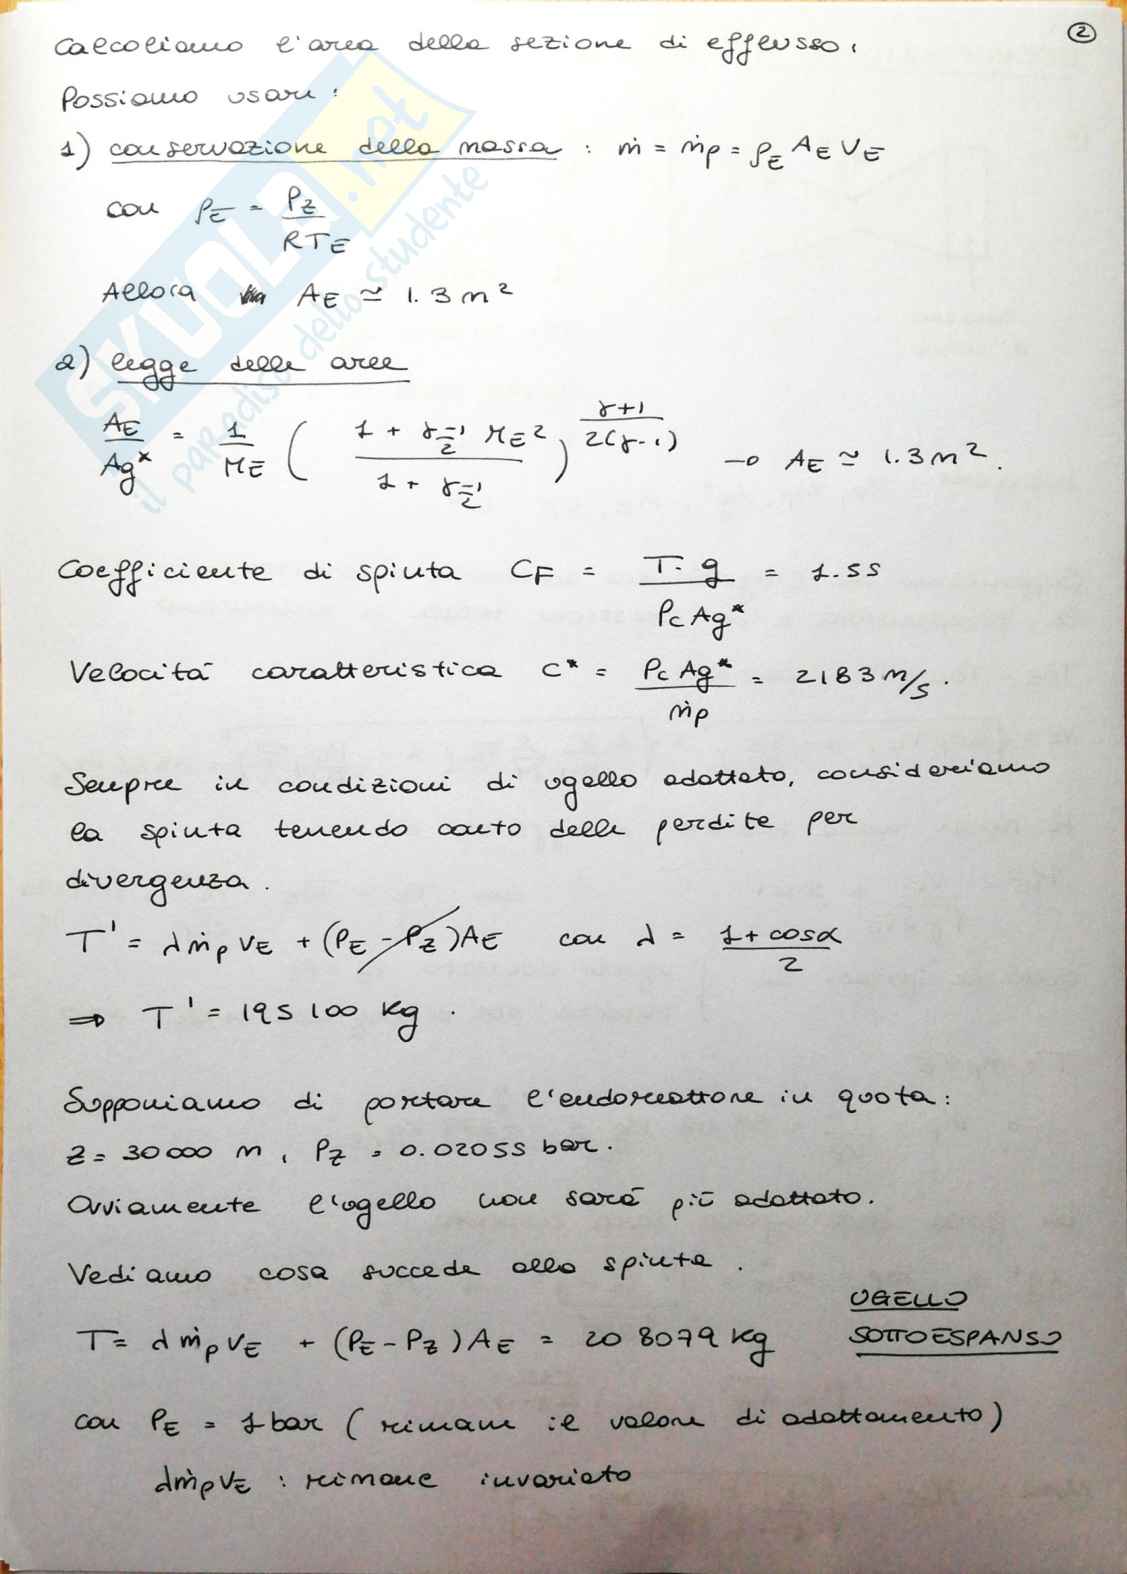 2
Calcoliamo l'area della sezione di efflusso.
Possiamo usare:
1) conservazione della massa : ṁ = ṁp = ρE AE VE
con ρE = PZ / RTE
Allora AE ≃ 1.3 m²
2) legge delle aree
AE / Ag* = 1/ME ( (1 + γ-1/2 ME²) / (1 + γ-1/2) )^(γ+1 / 2(γ-1)) → AE ≃ 1.3 m².
Coefficiente di spinta CF = T·g / Pc Ag* = 1.55
Velocità caratteristica C* = Pc Ag* / ṁp = 2183 m/s.
Sempre in condizioni di ugello adattato, consideriamo
la spinta tenendo conto delle perdite per
divergenza.
T' = λ ṁp VE + (PE - PZ) AE con λ = 1 + cosα / 2
⇒ T' = 195 100 kg.
Supponiamo di portare l'endoreattore in quota:
Z = 30000 m, PZ = 0.02055 bar.
Ovviamente l'ugello non sarà più adattato.
Vediamo cosa succede alla spinta.
UGELLO
T = λ ṁp VE + (PE - PZ) AE = 208079 kg SOTTOESPANSO
con PE = 1 bar (rimane il valore di adattamento)
λṁp VE : rimane invariato
SKUOLA.net
il paradiso dello studente